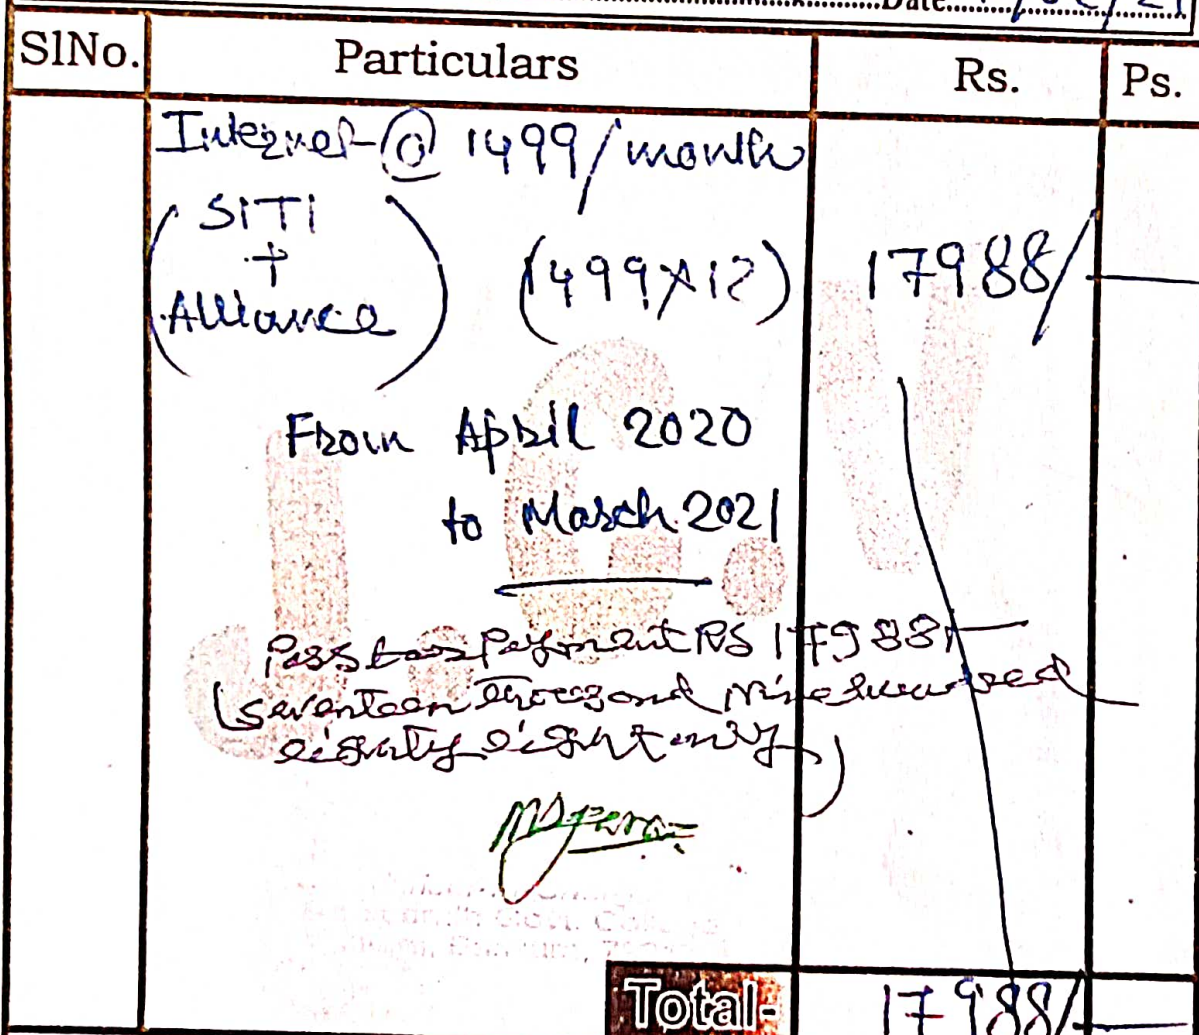 Date
SlNo. Particulars Rs. Ps.
Internet @ 1499/month
(SITI + Alliance) (1499x12) 17988/-
From April 2020
to March 2021
Pass for Payment RS 17988/-
(Seventeen thousand Nine hundred
eighty eight only)
Total- 17988/-